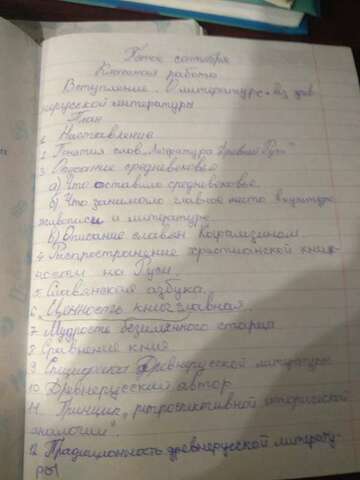 сентября
Классная работа
Вступление. О литературе. Из древ
нерусской литературы
План
1. Наставление
2. Понятия слов "Литература Древней Руси"
3. Описание средневековье
а) Что оставило средневековье.
б) Что занимало главное место в культуре,
живописи и литературе
в) Описание славян Карамзиным.
4. Распространение христианской книж
ности на Руси.
5. Славянская азбука.
6. Ценность книг главная.
7. Мудрость безымянного старца
8. Сравнение книг
9. Специфика Древнерусской литературы
10. Древнерусский автор
11. Принцип „ретроспективной исторической
аналогии".
12. Традиционность древнерусской литерату-
ры